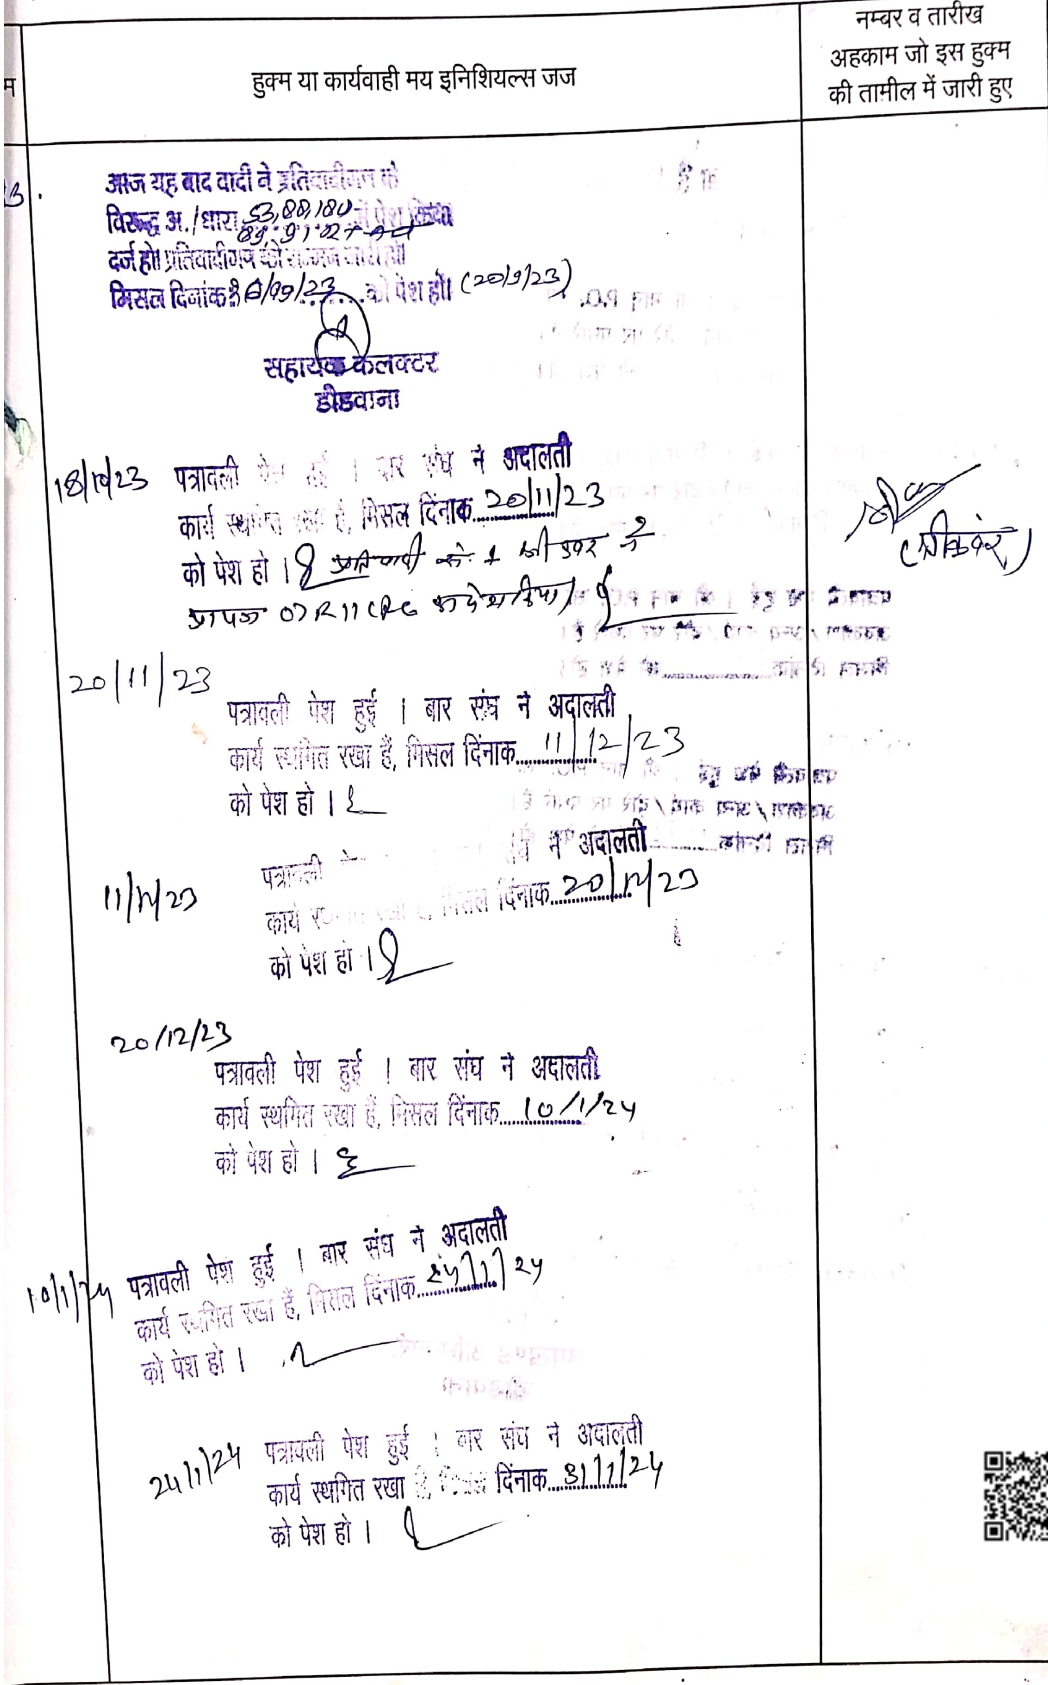 नम्बर व तारीख
अहकाम जो इस हुक्म
की तामील में जारी हुए
हुक्म या कार्यवाही मय इनिशियल्स जज
आज यह बाद वादी ने प्रतिवादीगण के
विरूद्ध अ./धारा 53,88,180 में पेश किया
89, 91, 92
दर्ज हो। प्रतिवादीगण को सम्मन जारी हो।
मिसल दिनांक को पेश हो। (20/9/23)
सहायक कलक्टर
डीडवाना
18/10/23 पत्रावली पेश हुई । बार संघ ने अदालती
कार्य स्थगित रखा हैं, मिसल दिंनाक 20/11/23
को पेश हो । प्रतिवादी सं. 1 श्री ने
07 R 11 CPC पेश किया
20/11/23
पत्रावली पेश हुई । बार संघ ने अदालती
कार्य स्थगित रखा हैं, मिसल दिंनाक 11/12/23
को पेश हो ।
11/12/23
पत्रावली पे संघ ने अदालती
कार्य स्थगित रखा हैं, मिसल दिंनाक 20/12/23
को पेश हो ।
20/12/23
पत्रावली पेश हुई । बार संघ ने अदालती
कार्य स्थगित रखा हैं, मिसल दिंनाक 10/1/24
को पेश हो ।
10/1/24 पत्रावली पेश हुई । बार संघ ने अदालती
कार्य स्थगित रखा हैं, मिसल दिंनाक 24/1/24
को पेश हो ।
24/1/24 पत्रावली पेश हुई । बार संघ ने अदालती
कार्य स्थगित रखा हैं, मिसल दिंनाक 31/1/24
को पेश हो ।